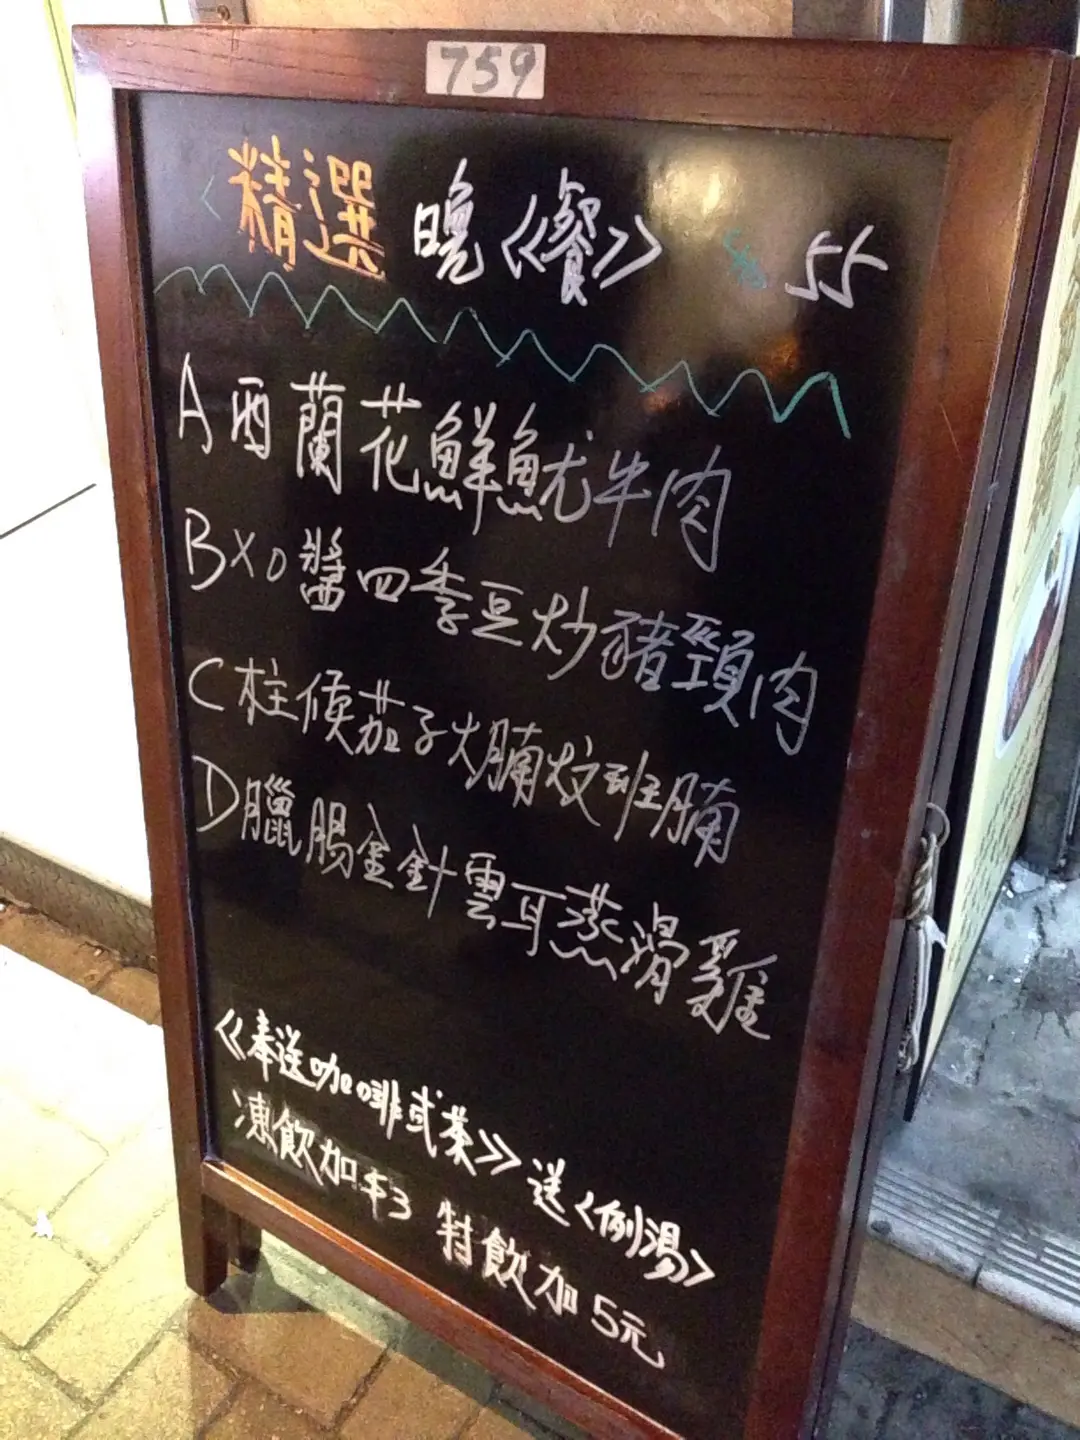 759
精選 晚《餐》 $ 55
A 西蘭花鮮魷牛肉
B XO醬四季豆炒豬頸肉
C 柱侯茄子火腩炆班腩
D 臘腸金針雲耳蒸滑雞
《奉送咖啡或茶》送〈例湯〉
凍飲加$3 特飲加5元